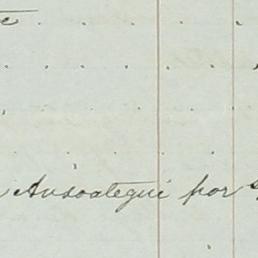 Ansoategui por